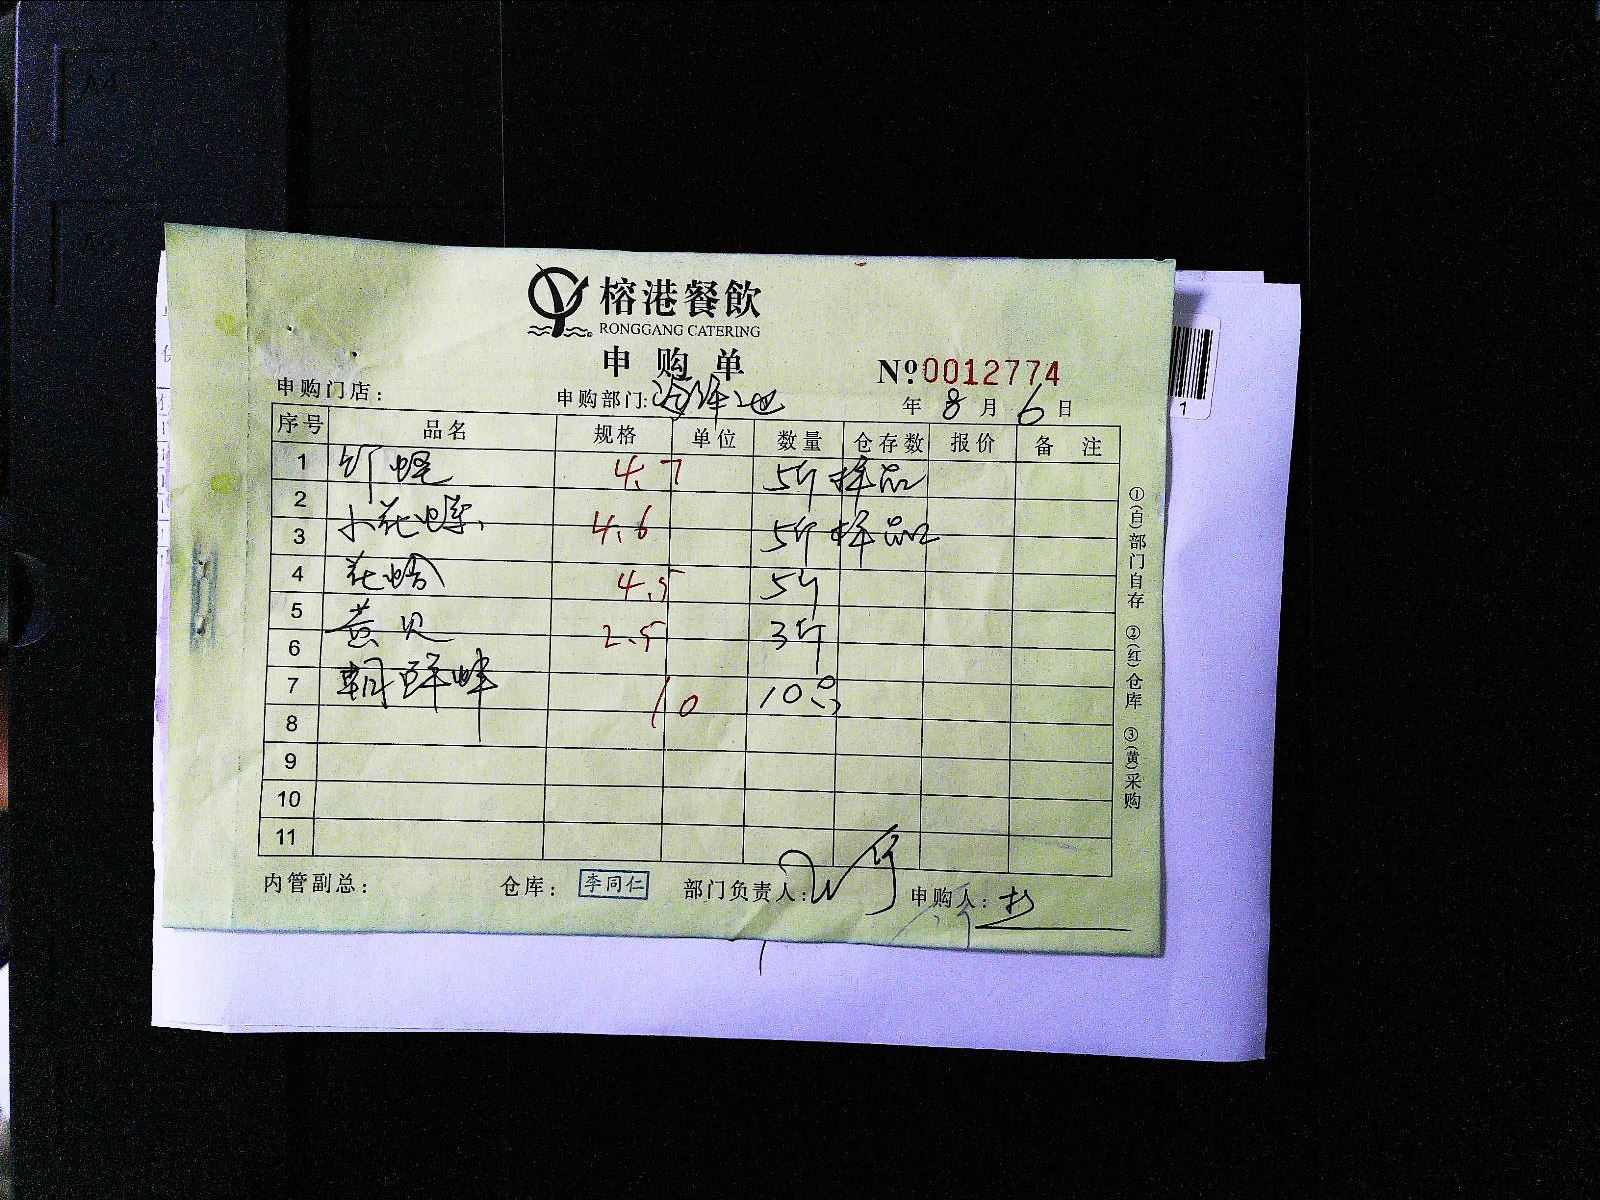 榕港餐飲
RONGGANG CATERING
申购单
№0012774
申购门店：
申购部门：海鲜池
年 8 月 6 日
序号 品名 规格 单位 数量 仓存数 报价 备注
1 竹蛏 4.7 5斤 样品
2
小花螺 4.6 5斤 样品
3
4 花蛤 4.5 5斤
5 黄贝 2.5 3斤
6
7 朝鲜蚌 10 10只
8
9
10
11
内管副总：
仓库：李同仁
部门负责人：
申购人：
①(白)部门自存 ②(红)仓库 ③(黄)采购
A4
1